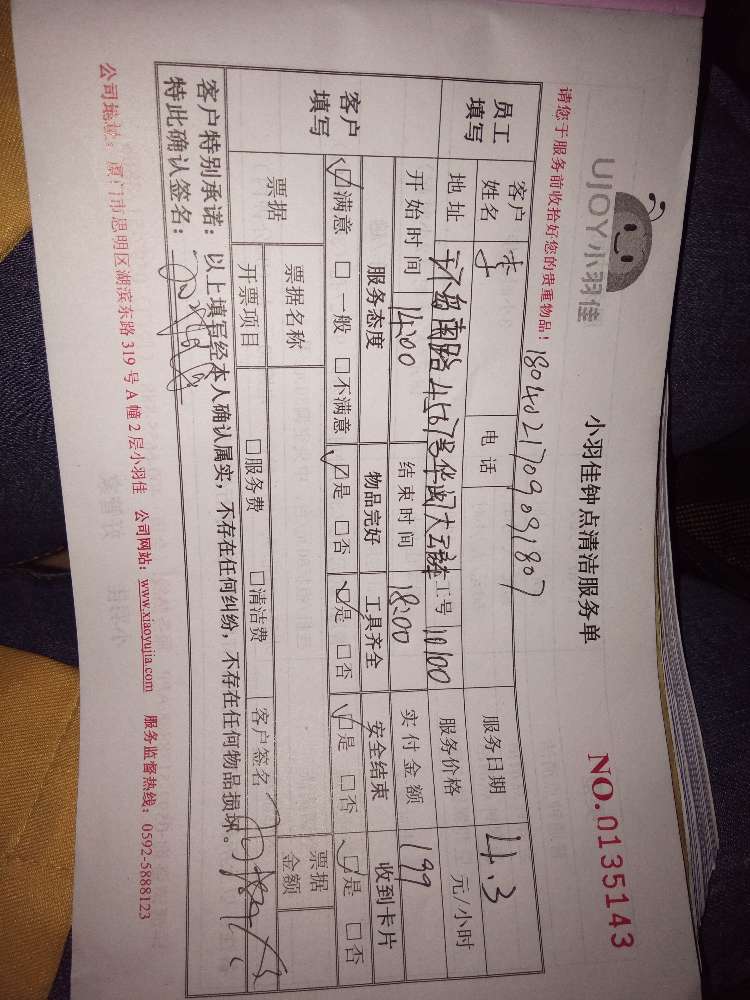 UJOY小羽佳
小羽佳钟点清洁服务单
NO.0135143
请您于服务前收拾好您的贵重物品!
180402170909091807
员工填写
客户姓名 李 电话 服务日期 4.3
地址 456号华闽大 工号 10100 服务价格 元/小时
开始时间 14:00 结束时间 18:00 实付金额 199
客户填写
服务态度 物品完好 工具齐全 安全结束 收到卡片
☑满意 □一般 □不满意 ☑是 □否 ☑是 □否 ☑是 □否 ☑是 □否
票据 票据名称 票据金额
开票项目 □服务费 □清洁费 客户签名
客户特别承诺:以上填写经本人确认属实,不存在任何纠纷,不存在任何物品损坏。
特此确认签名:
公司地址:厦门市思明区湖滨东路 319 号 A 幢 2 层小羽佳 公司网站:www.xiaoyujia.com 服务监督热线:0592-5888123